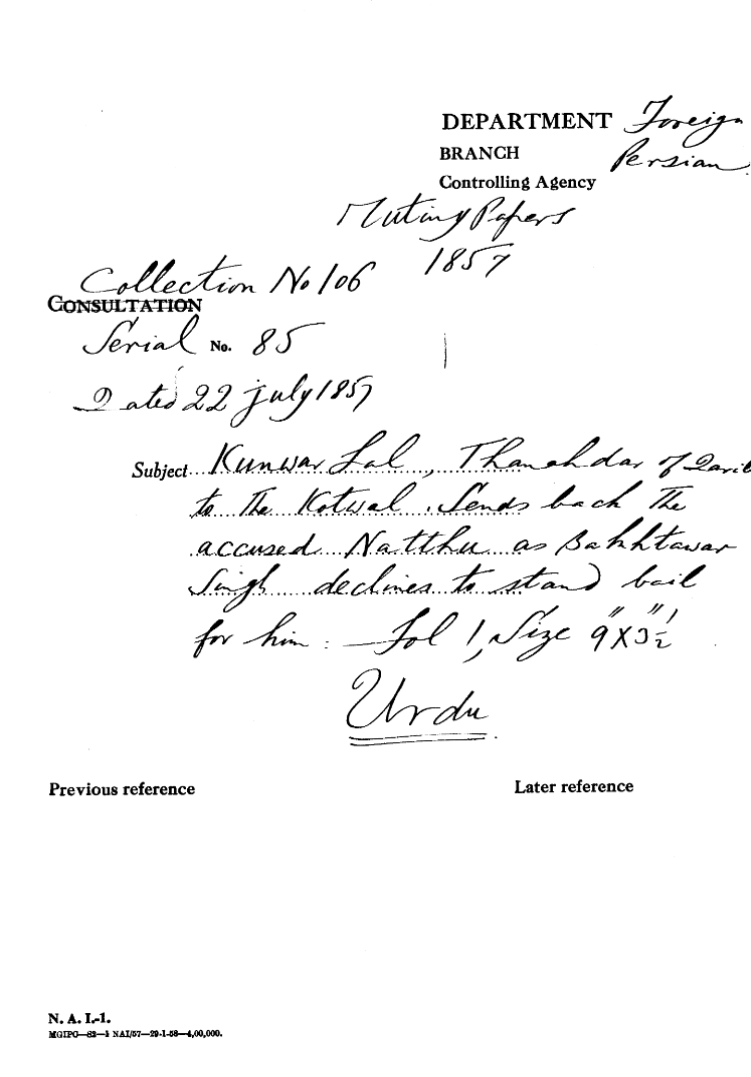 DEPARTMENT Foreign
BRANCH Persian
Controlling Agency
Mutiny Papers
1857
Collection No 106
CONSULTATION
Serial No. 85
Dated 22 July 1857
Subject Kunwar Lal, Thanahdar of
to the Kotwal. Sends back the
accused Natthu as Bakhtawar
Singh declines to stand bail
for him :— Fol 1, Size 9" X 3"½
Urdu
Previous reference Later reference
N. A. I.-1.
MGIPC—82—1 NAI/57—29-1-58—4,00,000.